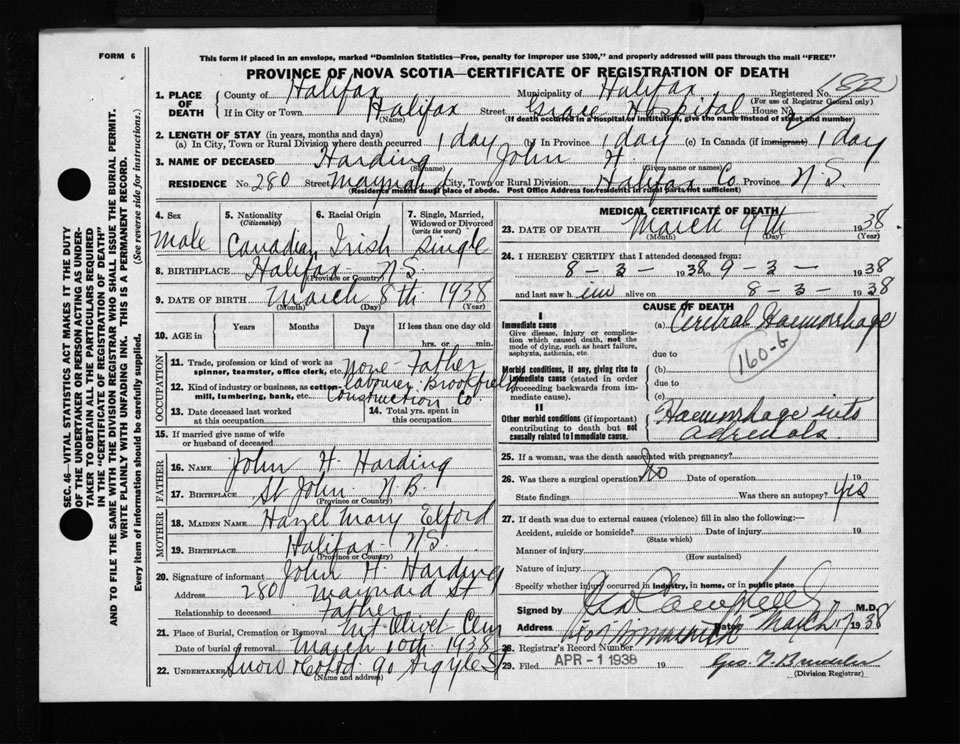 FORM 6
This form if placed in an envelope, marked "Dominion Statistics—Free, penalty for improper use $300," and properly addressed will pass through the mail "FREE"
PROVINCE OF NOVA SCOTIA—CERTIFICATE OF REGISTRATION OF DEATH
1. PLACE OF DEATH County of Halifax Municipality of Halifax Registered No. 182
(For use of Registrar General only)
If in City or Town Halifax Street Grace Hospital House No. 2
(Name) (If death occurred in a hospital or institution, give the name instead of street and number)
2. LENGTH OF STAY (in years, months and days)
(a) In City, Town or Rural Division where death occurred 1 day (b) In Province 1 day (c) In Canada (if immigrant) 1 day
3. NAME OF DECEASED Harding John H.
(Surname) (Given name or names)
RESIDENCE No. 280 Street Maynard City, Town or Rural Division Halifax Co Province N S
(Residence means usual place of abode. Post Office Address for residents in rural parts not sufficient)
4. Sex Male
5. Nationality (Citizenship) Canadian
6. Racial Origin Irish
7. Single, Married, Widowed or Divorced (write the word) Single
8. BIRTHPLACE Halifax N S.
(Province or Country)
9. DATE OF BIRTH March 8th 1938
(Month) (Day) (Year)
10. AGE in Years Months Days 1 If less than one day old hrs. or min.
OCCUPATION
11. Trade, profession or kind of work as spinner, teamster, office clerk, etc. none - Father
12. Kind of industry or business, as cotton-mill, lumbering, bank, etc. labourer Brookfield Construction Co.
13. Date deceased last worked at this occupation
14. Total yrs. spent in this occupation
15. If married give name of wife or husband of deceased
FATHER
16. NAME John H. Harding
17. BIRTHPLACE St John N.B.
(Province or Country)
MOTHER
18. MAIDEN NAME Hazel Mary Elford
19. BIRTHPLACE Halifax N S.
(Province or Country)
20. Signature of informant John H. Harding
Address 280 Maynard St
Relationship to deceased Father
21. Place of Burial, Cremation or Removal Mt. Olivet Cem
Date of burial or removal March 10th 1938
22. UNDERTAKER Snow & Co Ltd 90 Argyle St
(Name and address)
MEDICAL CERTIFICATE OF DEATH
23. DATE OF DEATH March 9th 1938
(Month) (Day) (Year)
24. I HEREBY CERTIFY that I attended deceased from:
8 - 3 - 1938 to 9 - 3 - 1938
and last saw h im alive on 8 - 3 - 1938
CAUSE OF DEATH
I
Immediate cause
Give disease, injury or complication which caused death, not the mode of dying, such as heart failure, asphyxia, asthenia, etc.
(a) Cerebral Haemorrhage
due to
160-b
Morbid conditions, if any, giving rise to immediate cause (stated in order proceeding backwards from immediate cause).
(b)
due to
(c)
II
Other morbid conditions (if important) contributing to death but not causally related to immediate cause.
Haemorrhage into adrenals.
25. If a woman, was the death associated with pregnancy?
26. Was there a surgical operation? No Date of operation 19
State findings Was there an autopsy? Yes
27. If death was due to external causes (violence) fill in also the following:—
Accident, suicide or homicide? Date of injury 19
(State which)
Manner of injury
(How sustained)
Nature of injury
Specify whether injury occurred in industry, in home, or in public place
Signed by Campbell M.D.
Address Date March 1938
28. Registrar's Record Number
29. Filed APR - 1 1938 19
(Division Registrar)
SEC. 46—VITAL STATISTICS ACT MAKES IT THE DUTY
OF THE UNDERTAKER OR PERSON ACTING AS UNDERTAKER
TO OBTAIN ALL THE PARTICULARS REQUIRED
IN THE "CERTIFICATE OF REGISTRATION OF DEATH"
AND TO FILE THE SAME WITH THE DIVISION REGISTRAR WHO SHALL ISSUE THE BURIAL PERMIT.
WRITE PLAINLY WITH UNFADING INK. THIS IS A PERMANENT RECORD.
Every item of information should be carefully supplied. (See reverse side for instructions.)